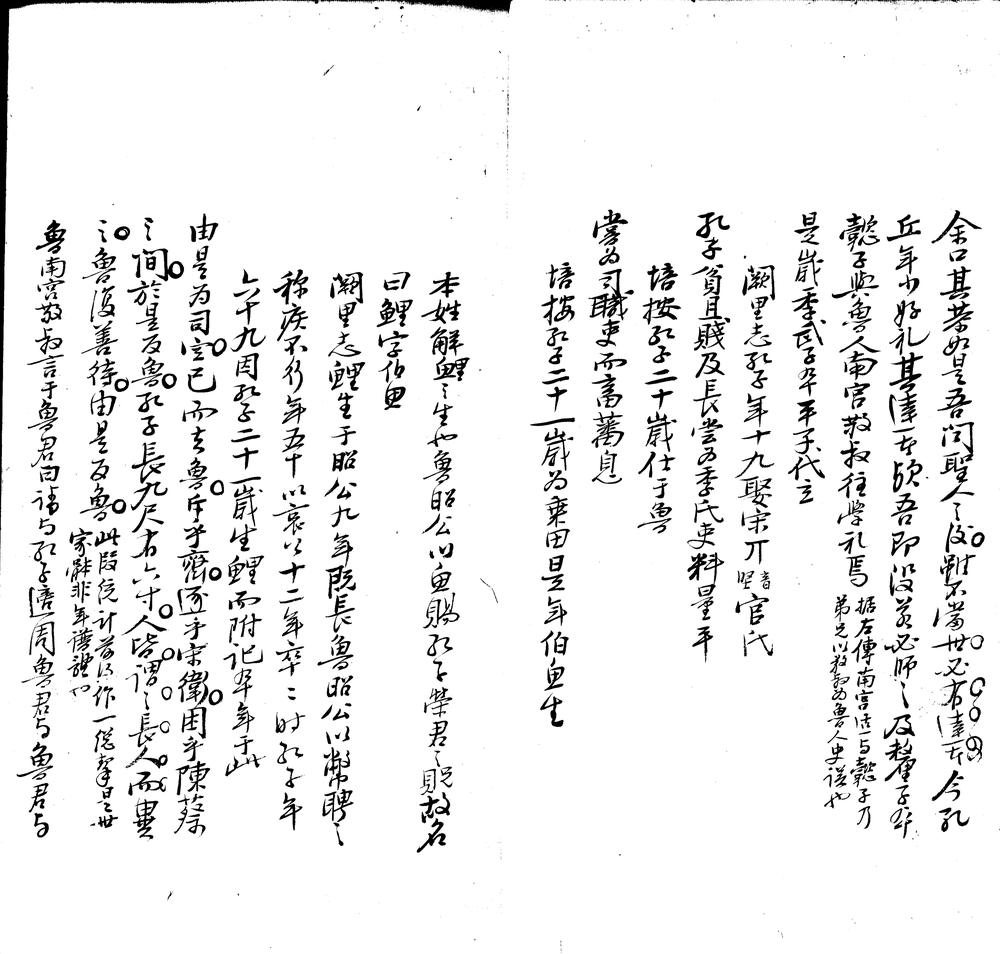 余口其恭如是吾聞聖人之後雖不當世必有達者今孔
丘年少好礼其達者欤吾即没若必師之及釐子卒
懿子與魯人南宮敬叔往学礼焉據左傳南宮适与懿子乃弟兄以敬叔為魯人史误也
是歲季武子卒平子代立
闕里志孔子年十九娶宋丌音堅官氏
孔子貧且賤及長嘗为季氏吏料量平
培按孔子二十歲仕于魯
嘗为司職吏而畜蕃息
培按孔子二十一歲为乘田是年伯魚生
本姓解鯉之生也魯昭公以魚賜孔子榮君之貺故名
曰鯉字伯魚
闕里志鯉生于昭公九年既長魯昭公以幣聘之
称疾不行年五十以哀公十二年卒之时孔子年
六十九因孔子二十一歲生鯉而附记卒年于此
由是为司空已而去魯斥乎齊逐乎宋衛困乎陳蔡
之间於是反魯孔子長九尺有六寸人皆謂之長人而異
之魯復善待由是反魯此段統計前後作一總挈是世家體非年譜體也
魯南宮敬叔言于魯君曰請与孔子適周魯君与魯君与